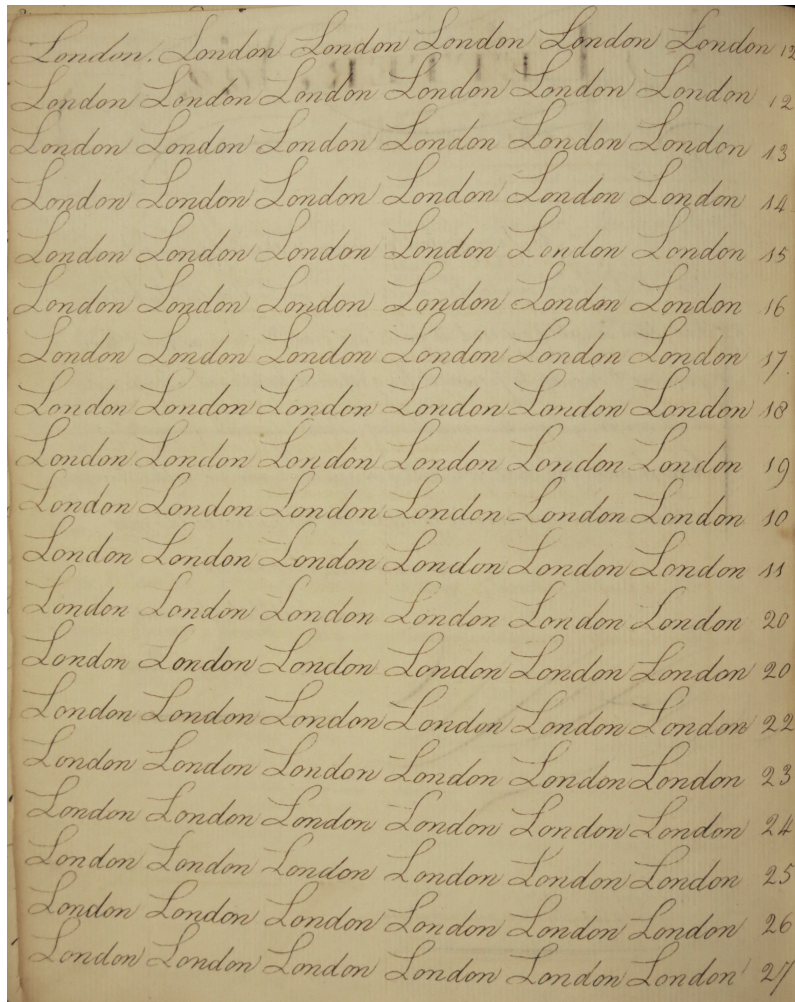 London. London London London London London 12
London London London London London London 12
London London London London London London 13
London London London London London London 14
London London London London London London 15
London London London London London London 16
London London London London London London 17
London London London London London London 18
London London London London London London 19
London London London London London London 10
London London London London London London 11
London London London London London London 20
London London London London London London 20
London London London London London London 22
London London London London London London 23
London London London London London London 24
London London London London London London 25
London London London London London London 26
London London London London London London 27